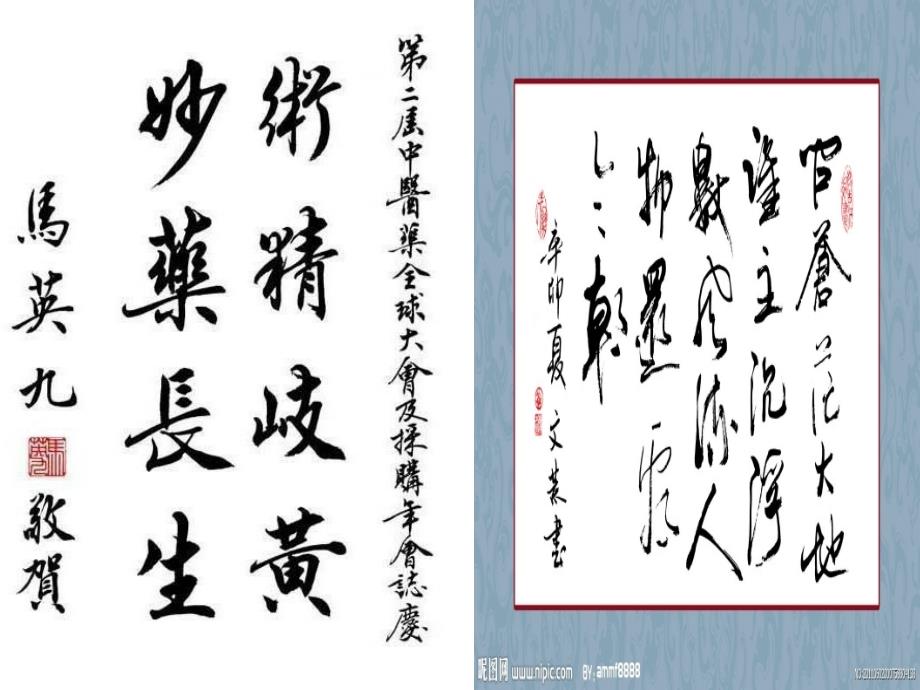 第二屆中醫藥全球大會及採購年會誌慶
術精岐黃
妙藥長生
馬英九 敬賀
问蒼茫大地
誰主沉浮
數风流人
物還看
今朝
辛卯夏文書
昵图网 www.nipic.com
BY: ammf8888